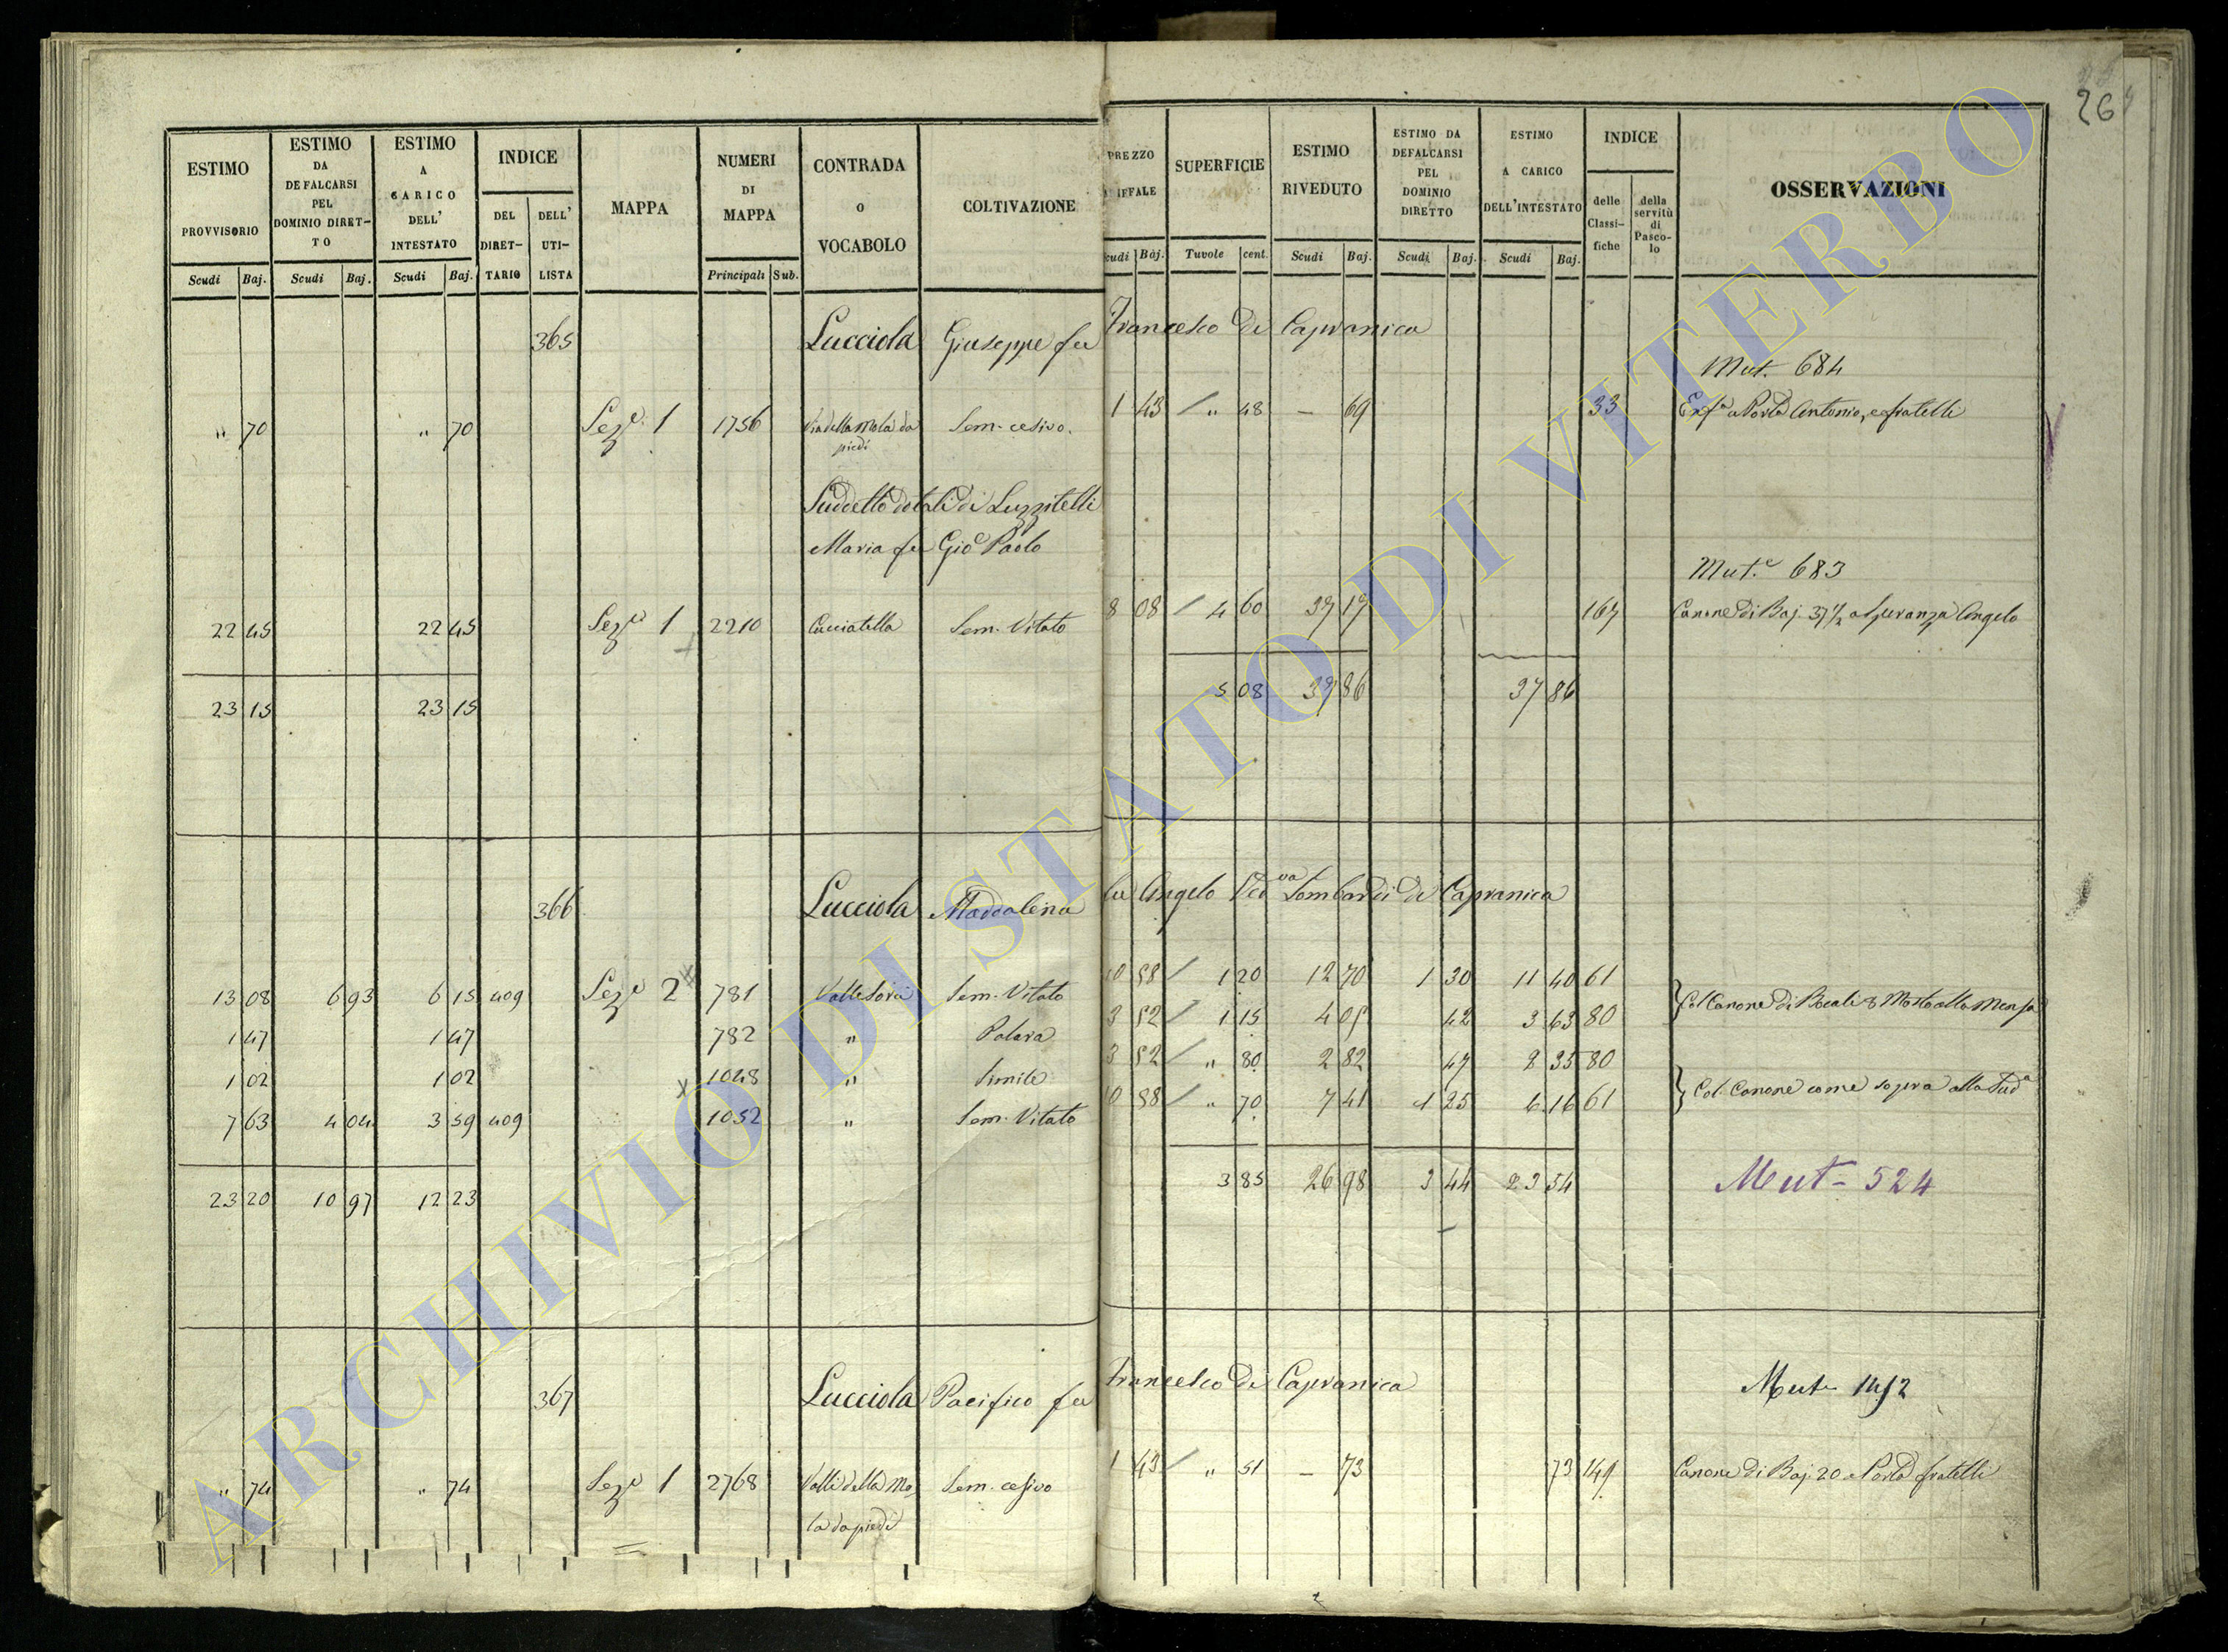 26
ESTIMO PROVVISORIO
ESTIMO DA DEFALCARSI PEL DOMINIO DIRET-TO
ESTIMO A CARICO DELL' INTESTATO
INDICE
DEL DIRET-TARIO
DELL' UTI-LISTA
MAPPA
NUMERI DI MAPPA
CONTRADA O VOCABOLO
COLTIVAZIONE
PREZZO
SUPERFICIE
ESTIMO RIVEDUTO
ESTIMO DA DEFALCARSI PEL DOMINIO DIRETTO
ESTIMO A CARICO DELL'INTESTATO
INDICE
delle Classi-fiche
della servitù di Pasco-lo
OSSERVAZIONI
Scudi Baj. Scudi Baj. Scudi Baj. Principali Sub. Scudi Baj. Tavole cent. Scudi Baj. Scudi Baj. Scudi Baj.
365 Lucciola Giuseppe fu Francesco di Capranica
Mut. 684
" 70 " 70 Sez.e 1 1756 Via della Mola da piedi Sem. cesivo. 1 43 / " 48 — 69 33 Antonio, e fratelli
Suddetto dotali di Luzzitelli
Maria fu Gio Paolo
Mut.e 683
22 45 22 45 Sez.e 1 2210 Cucciatella Sem. Vitato 8 08 / 4 60 37 17 167 Canone di Baj. 37 1/2 a Speranza Angelo
23 15 23 15 5 08 37 86 37 86
366 Lucciola Maddalena fu Angelo Ved.va Lombardi di Capranica
13 08 6 93 6 15 409 Sez.e 2 781 Sem. Vitato 10 58 / 1 20 12 70 1 30 11 40 61
Col Canone di Bocali 8 Mosto alla Mensa
1 47 1 47 782 " Polara 3 52 / 1 15 4 05 42 3 63 80
1 02 1 02 1048 " Simile 3 52 / " 80 2 82 47 2 35 80
7 63 4 04 3 59 409 1052 " Sem. Vitato 10 58 / " 70 7 41 1 25 6 16 61
Col Canone come sopra alla Sud.a
23 20 10 97 12 23 3 85 26 98 3 44 23 54
Mut- 524
367 Lucciola Pacifico fu Francesco di Capranica
" 74 " 74 Sez.e 1 2768 Valli della Mola da piedi Sem. cesivo 1 43 / " 51 — 73 73 149 Canone di Baj. 20 a fratelli
ARCHIVIO DI STATO DI VITERBO